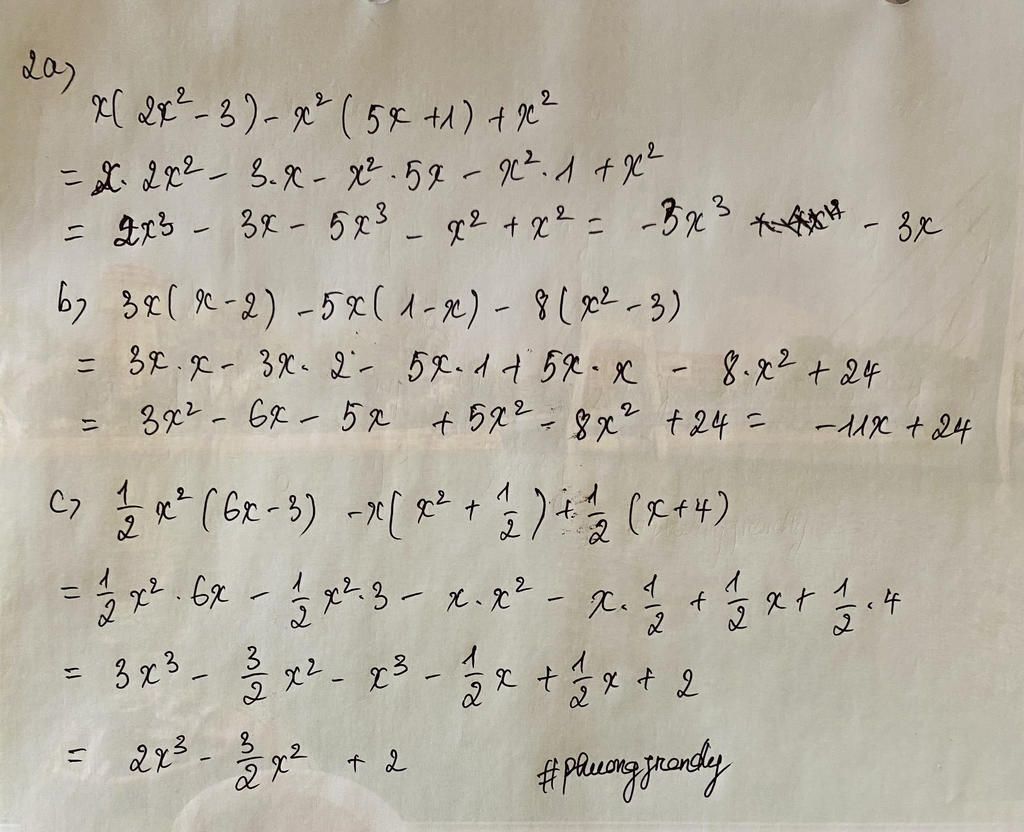 2a)
x( 2x² - 3) - x² ( 5x + 1) + x²
= x. 2x² - 3.x - x² . 5x - x² . 1 + x²
= 2x³ - 3x - 5x³ - x² + x² = -3x³ - 3x
b) 3x( x - 2) - 5x( 1 - x) - 8( x² - 3)
= 3x . x - 3x . 2 - 5x . 1 + 5x . x - 8 . x² + 24
= 3x² - 6x - 5x + 5x² - 8x² + 24 = -11x + 24
c) 1/2 x² (6x - 3) - x( x² + 1/2 ) + 1/2 (x + 4)
= 1/2 x² . 6x - 1/2 x² . 3 - x . x² - x . 1/2 + 1/2 x + 1/2 . 4
= 3x³ - 3/2 x² - x³ - 1/2 x + 1/2 x + 2
= 2x³ - 3/2 x² + 2